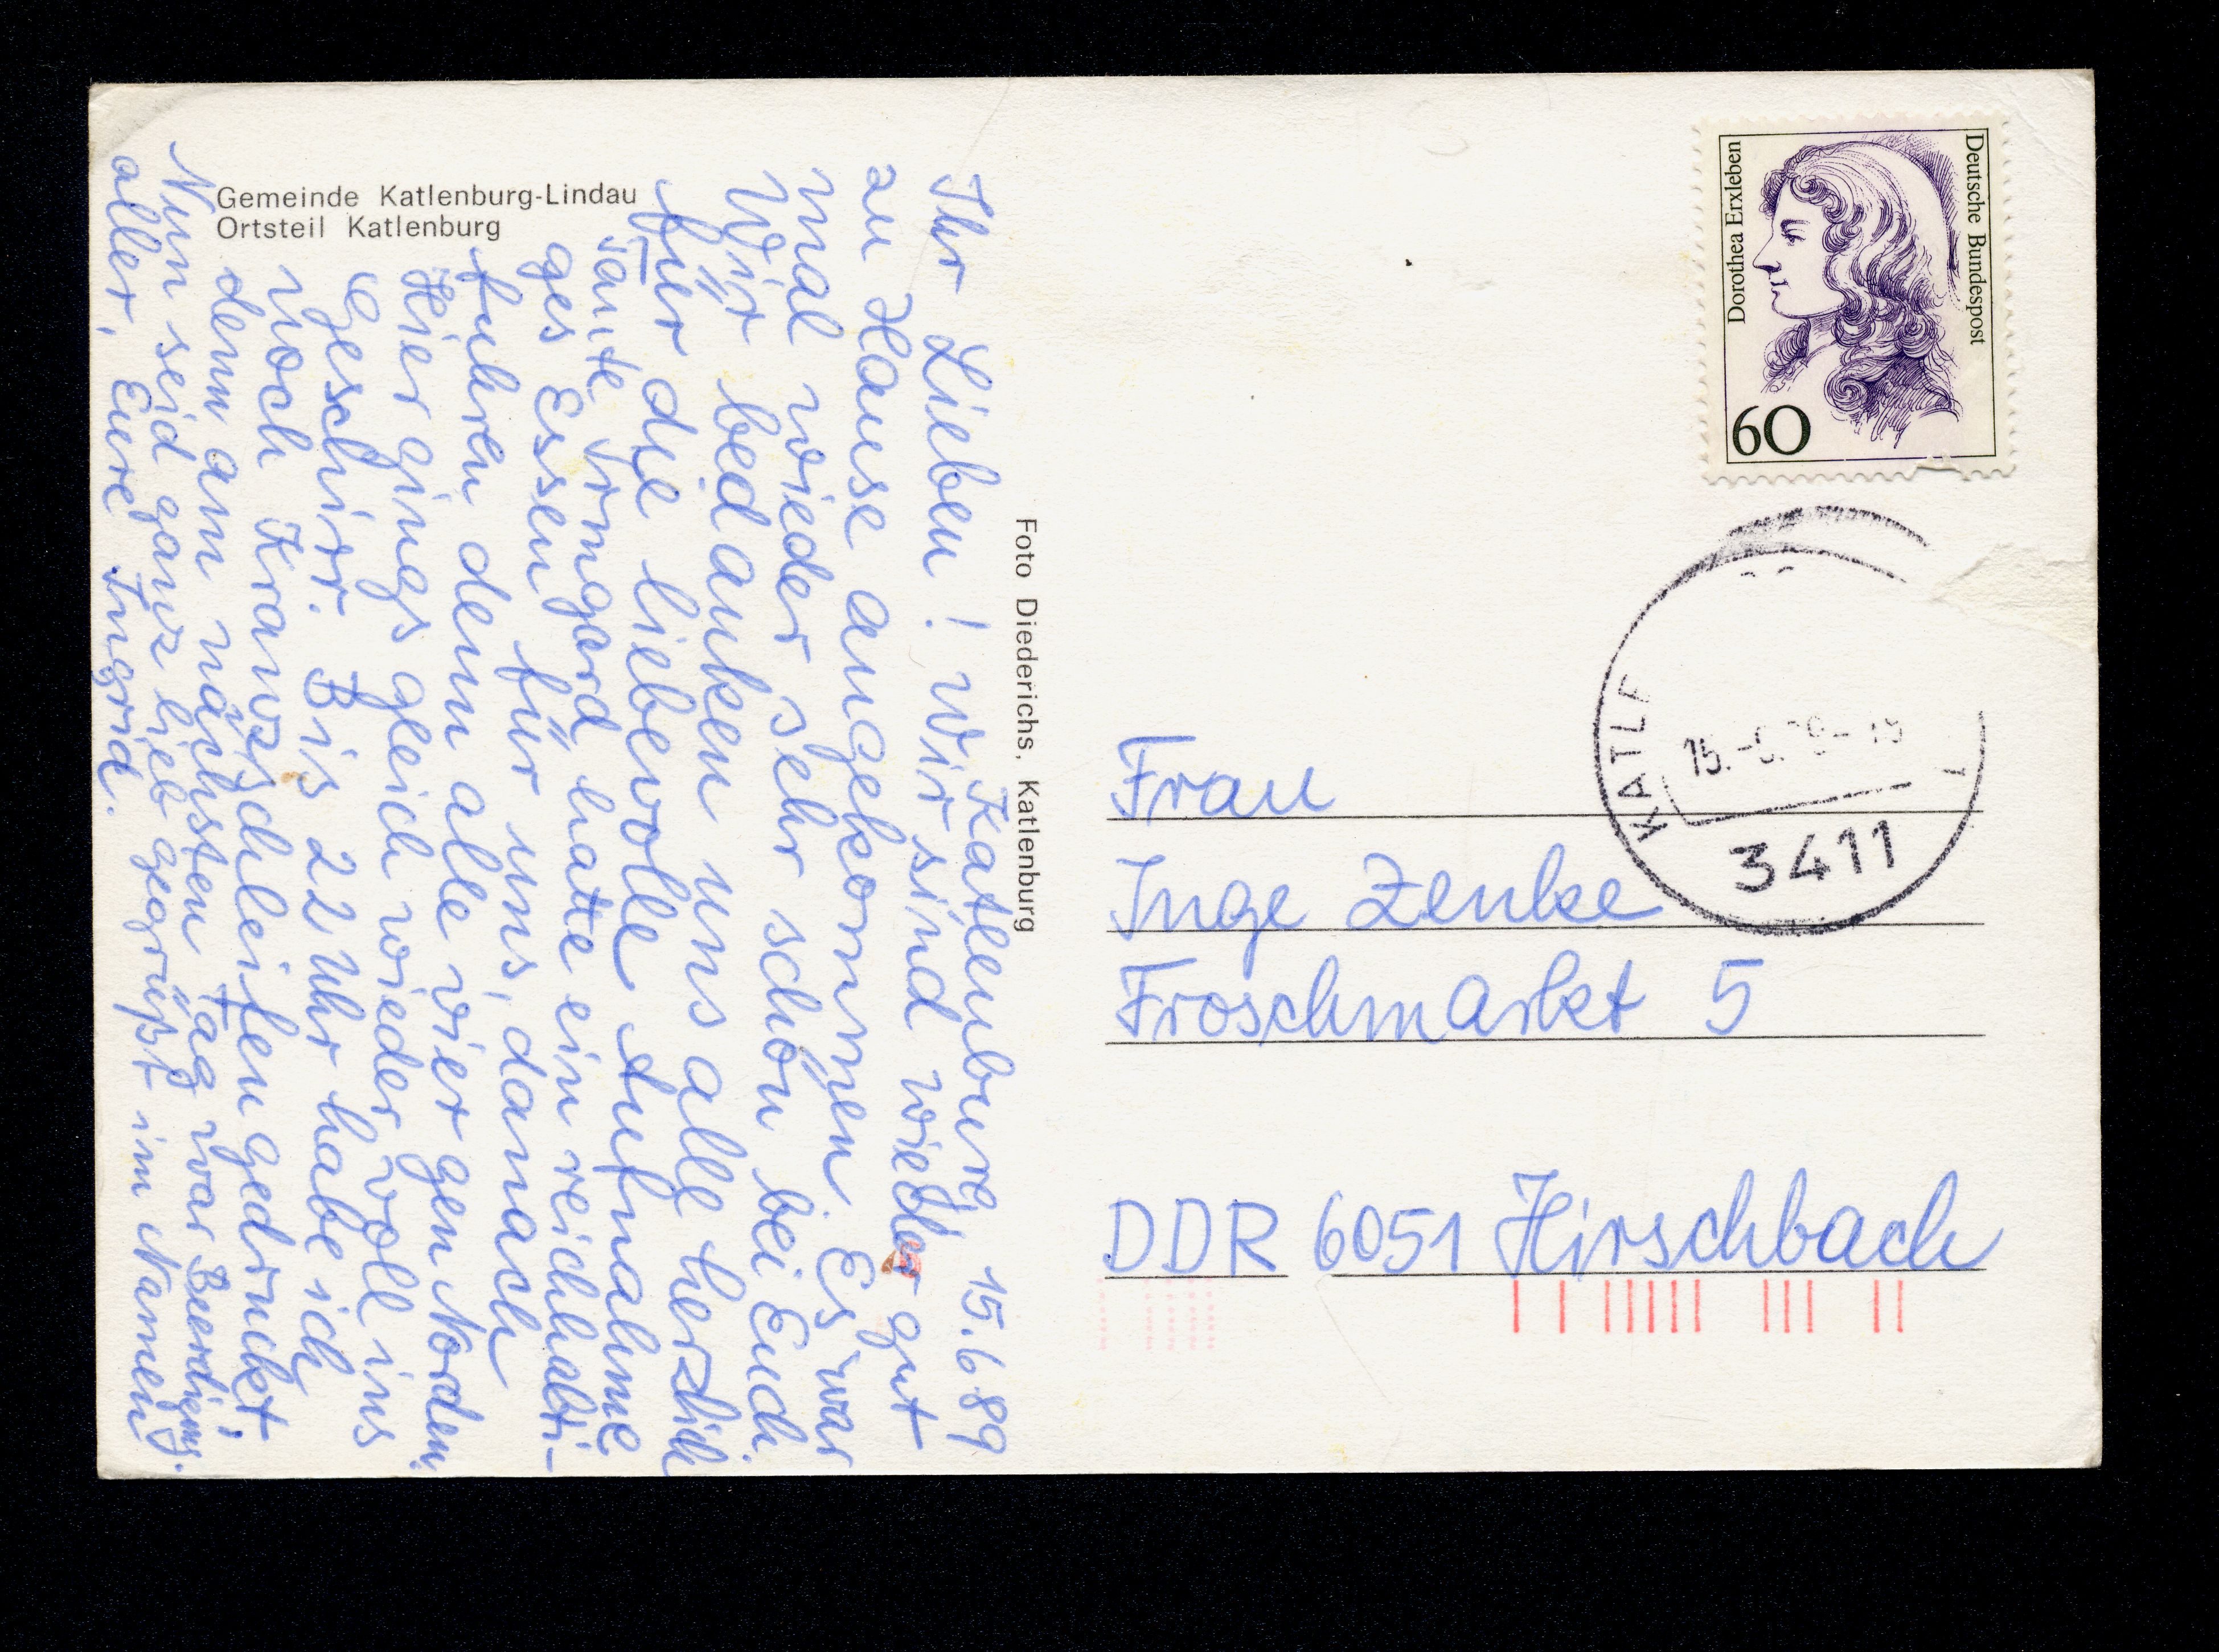 Gemeinde Katlenburg-Lindau
Ortsteil Katlenburg
Katlenburg 15.6.89
Ihr Lieben! Wir sind wieder gut
zu Hause angekommen. Es war
mal wieder sehr schön bei Euch.
Wir bedanken uns alle herzlich
für die liebevolle Aufnahme
Tante Irmgard hatte ein reichhalti-
ges Essen für uns, danach
fuhren denn alle vier gen Norden.
Hier gings gleich wieder voll ins
Geschirr. Bis 22 Uhr habe ich
noch Kranzschleifen gedruckt,
denn am nächsten Tag war Beerdigung.
Nun seid ganz lieb gegrüßt im Namen
aller, Eure Ingrid.
Foto Diederichs, Katlenburg
Deutsche Bundespost
Dorothea Erxleben
60
KATLE
15.
3411
Frau
Inge Zenke
Froschmarkt 5
DDR 6051 Hirschbach